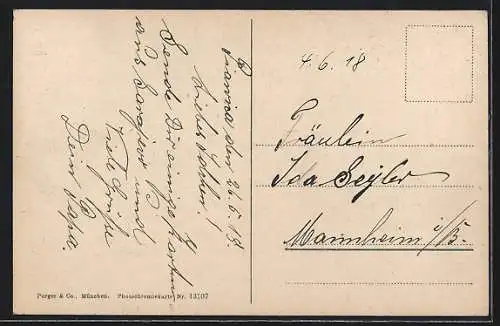 den 26.5.18.
Liebes Idchen!
Sende Dir einige Karten
aus Sarajevo und
Viele Grüße
Dein Papa.
4.6.18
Fräulein
Ida Seyler
Mannheim i/B.
Purger & Co., München. Photochromiekarte Nr. 13107